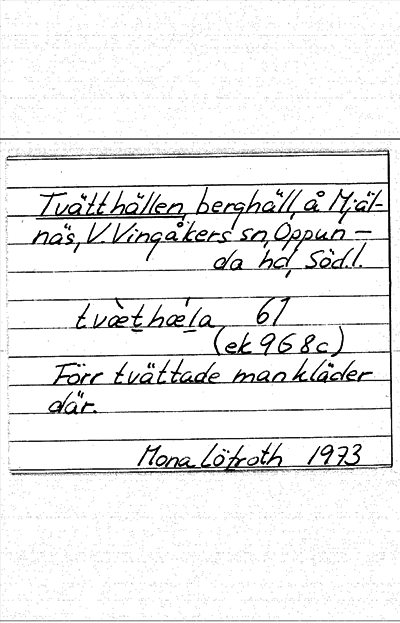 Tvätthällen, berghäll, å Mjäl-
näs, V. Vingåkers sn, Oppun-
da hd, Söd.l.
tvæ̀t̲hæ´l̲a 61
(ek 968c)
Förr tvättade man kläder
där.
Mona Löfroth 1973